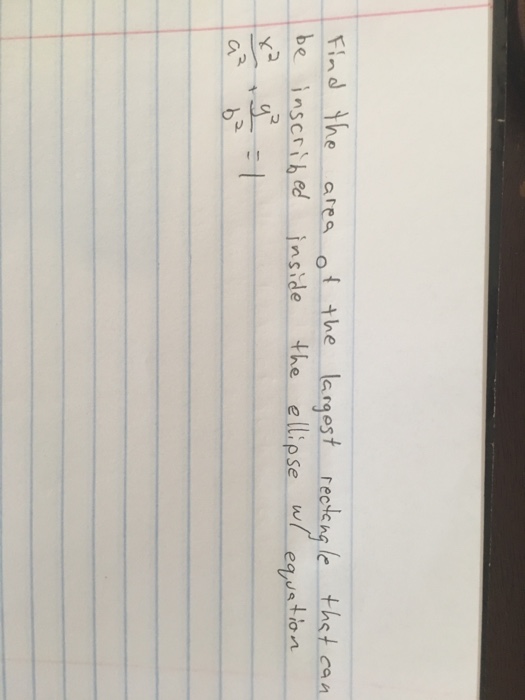 Find the area of the largest rectangle that can
be inscribed inside the ellipse w/ equation
x²/a² + y²/b² = 1